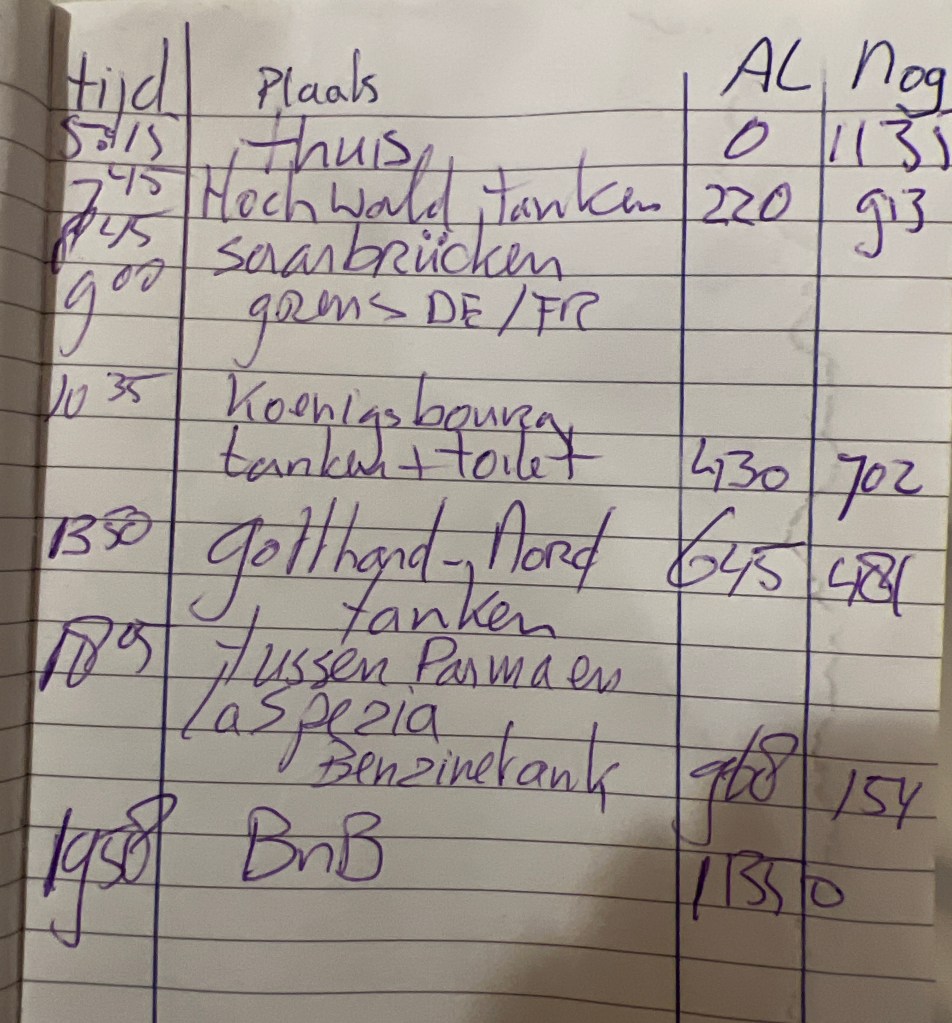 tijd Plaats AL nog
5:15 thuis 0 1135
7 45 Hochwald tanken 220 913
8 45 Saarbrücken
9 00 grens DE/FR
10 35 Koenigsbourg
tanken + toilet 430 702
13 50 Gotthard-Nord 645 481
tanken
18 05 tussen Parma en
La Spezia
Benzinetank 968 154
19 58 BnB 1135 0